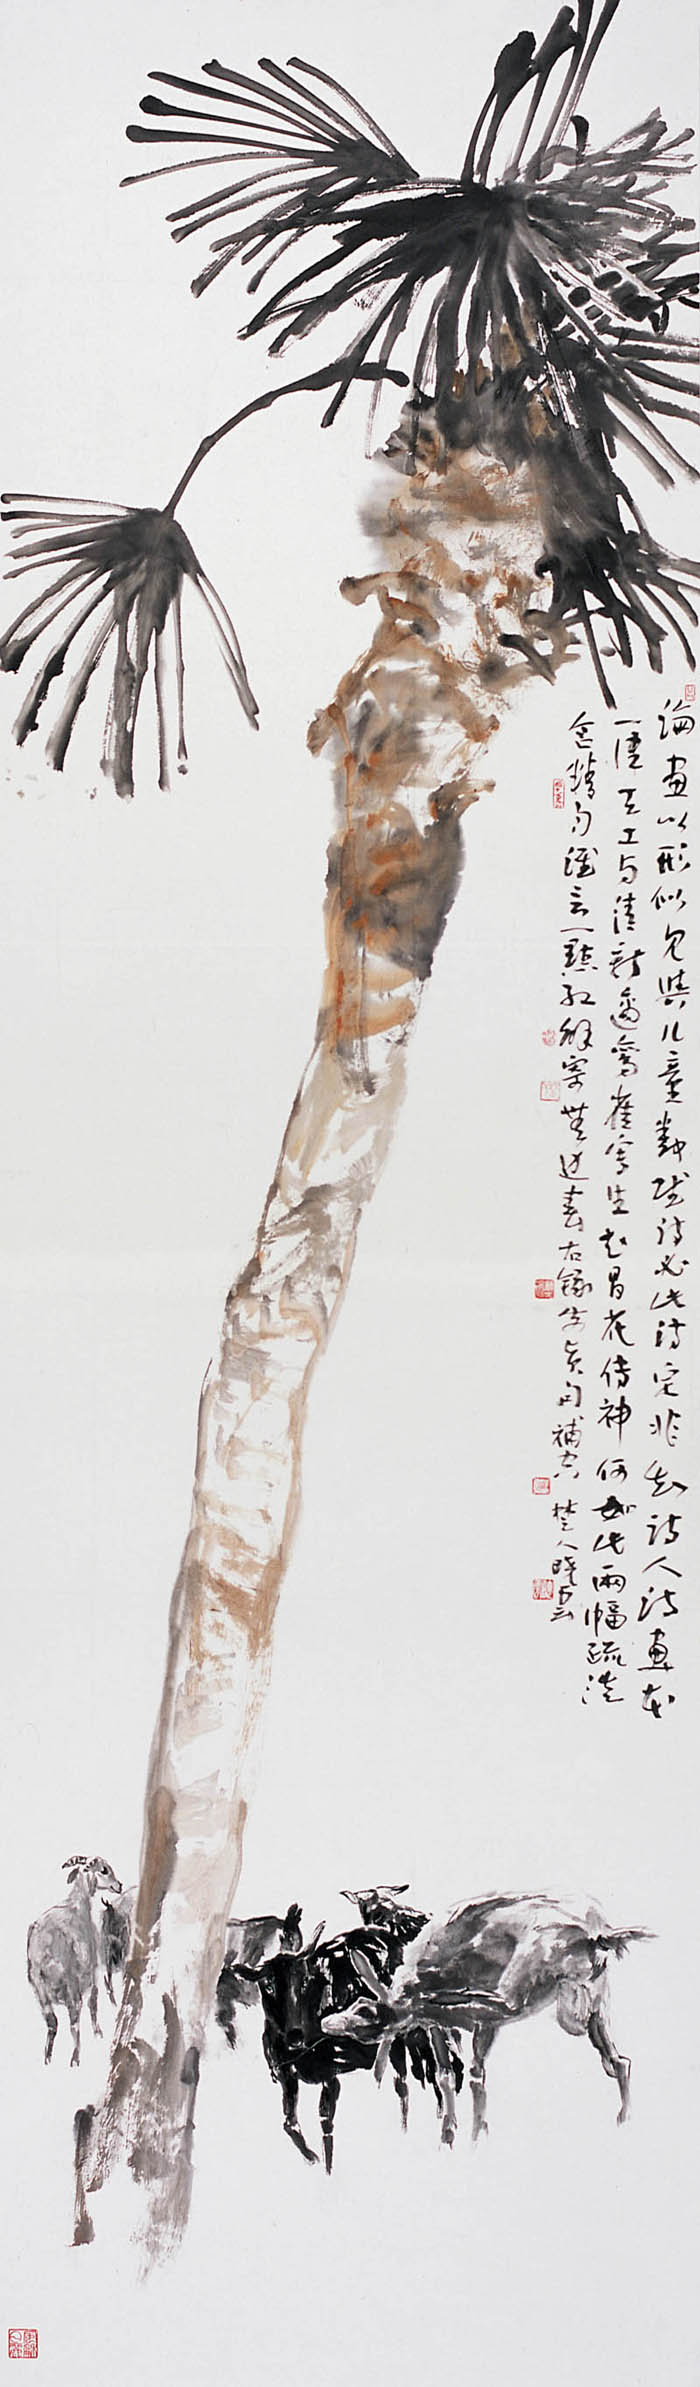 論畫以形似見與儿童鄰賦詩必此詩定非知詩人詩畫本
一律天工与清新邊鸞雀寫生赵昌花传神何如此兩幅疏淡
含精勻誰言一點红解寄無边春右錄句補空 楚人晓雲